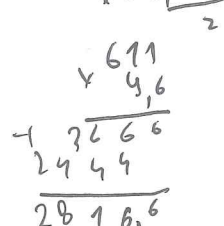 2
611
× 4,6
+ 3666
2444
2810,6